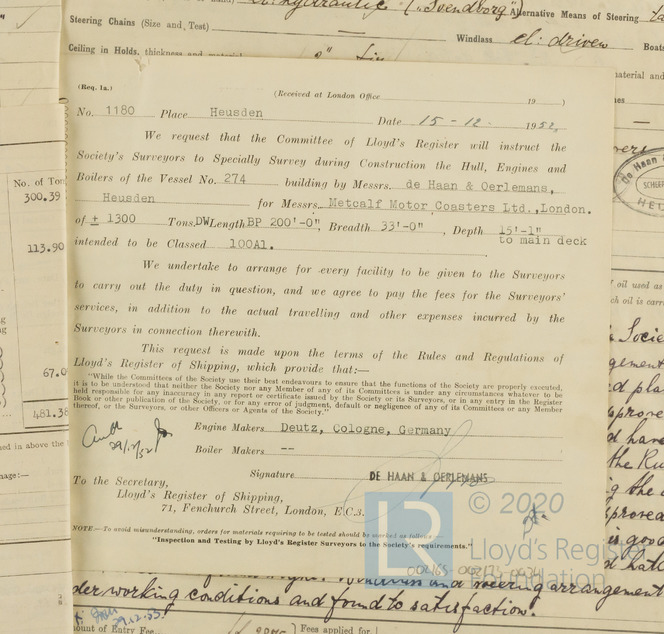 hydraulic ("Svendborg") Alternative Means of Steering
Steering Chains (Size and Test)
Windlass el: driven Boats
Ceiling in Holds, thickness and material
(Req. 1a.)
(Received at London Office 19 )
No. 1180 Place Heusden Date 15-12- 1952.
We request that the Committee of Lloyd's Register will instruct the
Society's Surveyors to Specially Survey during Construction the Hull, Engines and
Boilers of the Vessel No. 274 building by Messrs. de Haan & Oerlemans,
Heusden for Messrs. Metcalf Motor Coasters Ltd., London.
of ± 1300 Tons.DW Length BP 200'-0", Breadth 33'-0", Depth 15'-1"
to main deck
intended to be Classed 100A1.
We undertake to arrange for every facility to be given to the Surveyors
to carry out the duty in question, and we agree to pay the fees for the Surveyors'
services, in addition to the actual travelling and other expenses incurred by the
Surveyors in connection therewith.
This request is made upon the terms of the Rules and Regulations of
Lloyd's Register of Shipping, which provide that:—
"While the Committees of the Society use their best endeavours to ensure that the functions of the Society are properly executed,
it is to be understood that neither the Society nor any Member of any of its Committees is under any circumstances whatever to be
held responsible for any inaccuracy in any report or certificate issued by the Society or its Surveyors, or in any entry in the Register
Book or other publication of the Society, or for any error of judgment, default or negligence of any of its Committees or any Member
thereof, or the Surveyors, or other Officers or Agents of the Society."
Engine Makers Deutz, Cologne, Germany
Boiler Makers --
Signature DE HAAN & OERLEMANS
To the Secretary,
Lloyd's Register of Shipping,
71, Fenchurch Street, London, E.C.3.
NOTE.—To avoid misunderstanding, orders for materials requiring to be tested should be marked as follows:—
"Inspection and Testing by Lloyd's Register Surveyors to the Society's requirements."
No. of Ton
300.39
113.90
67.0
481.38
LR
© 2020
Lloyd's Register
Foundation
der working conditions and found to satisfaction.
29.12.53
ount of Entry Fee Fees applied for